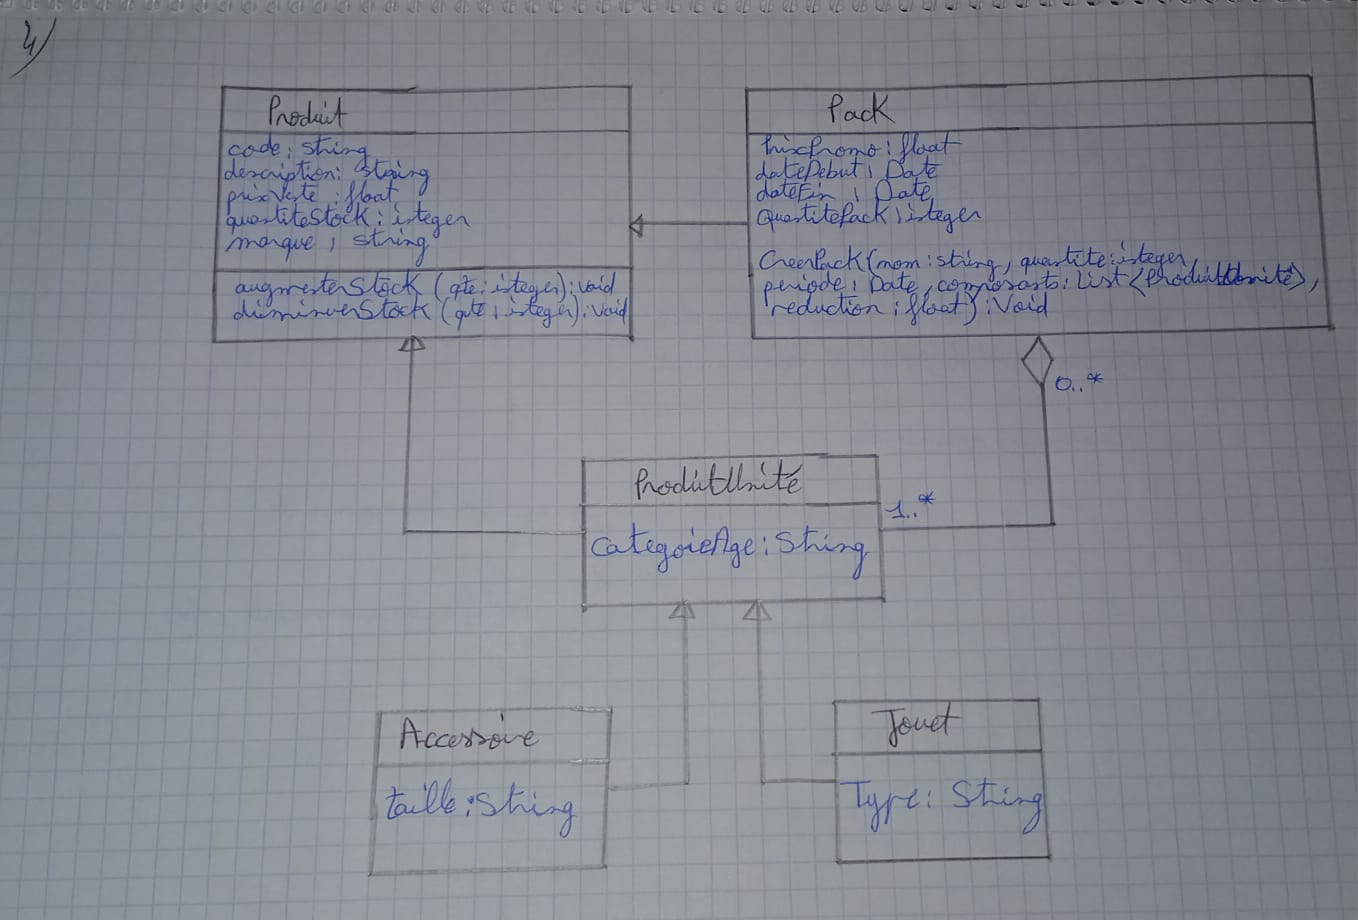 4/
Produit
code : String
description : String
prixVente : float
quantiteStock : integer
marque : string
augmenterStock (qte : integer) : void
diminuerStock (qte : integer) : void
Pack
PrixPromo : float
dateDebut : Date
dateFin : Date
QuantitePack : integer
CreerPack (nom : string, quantite : integer,
periode : Date, composants : List <ProduitUnité>,
reduction : float) : Void
0..*
ProduitUnité
1..*
CategorieAge : String
Accessoire
taille : String
Jouet
Type : String